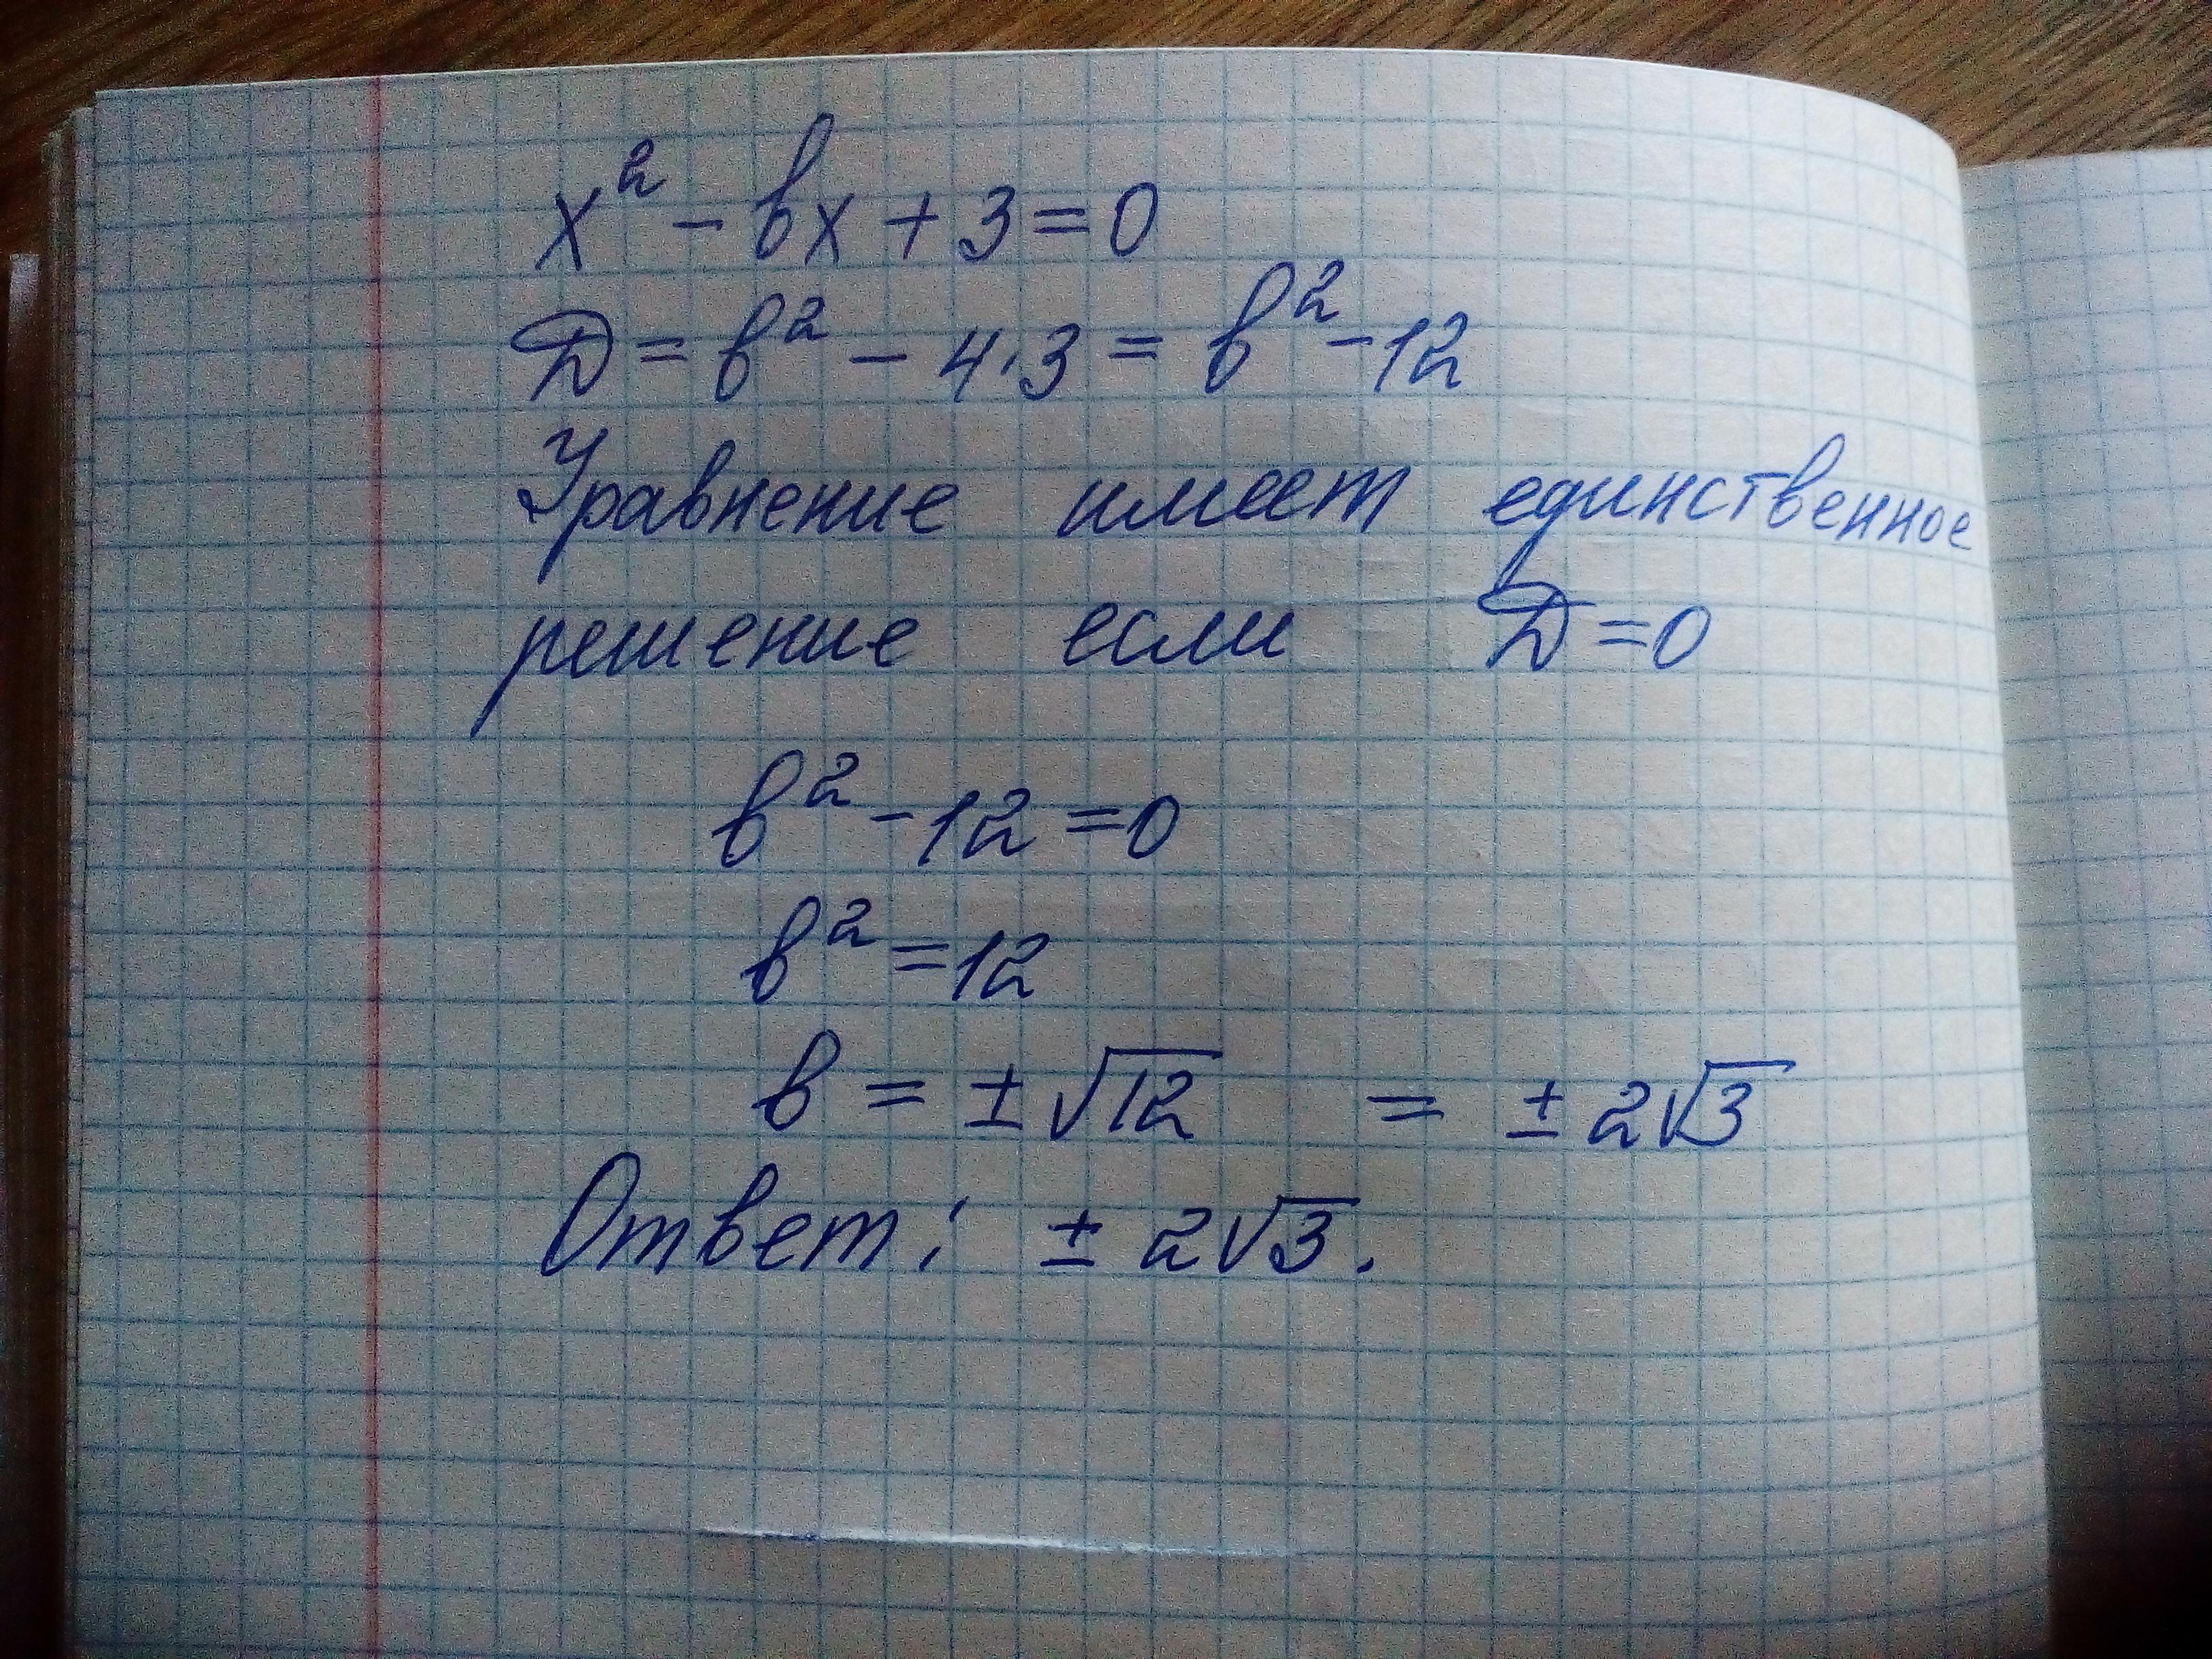 x² - вx + 3 = 0
D = в² - 4·3 = в² - 12
Уравнение имеет единственное
решение если D = 0
в² - 12 = 0
в² = 12
в = ± √12 = ± 2√3
Ответ: ± 2√3.